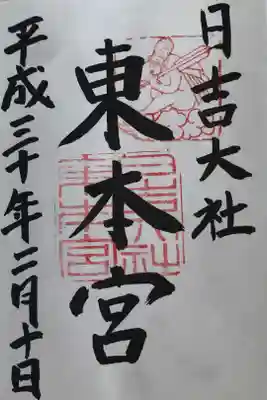 日吉大社
東本宮
平成三十年二月十日